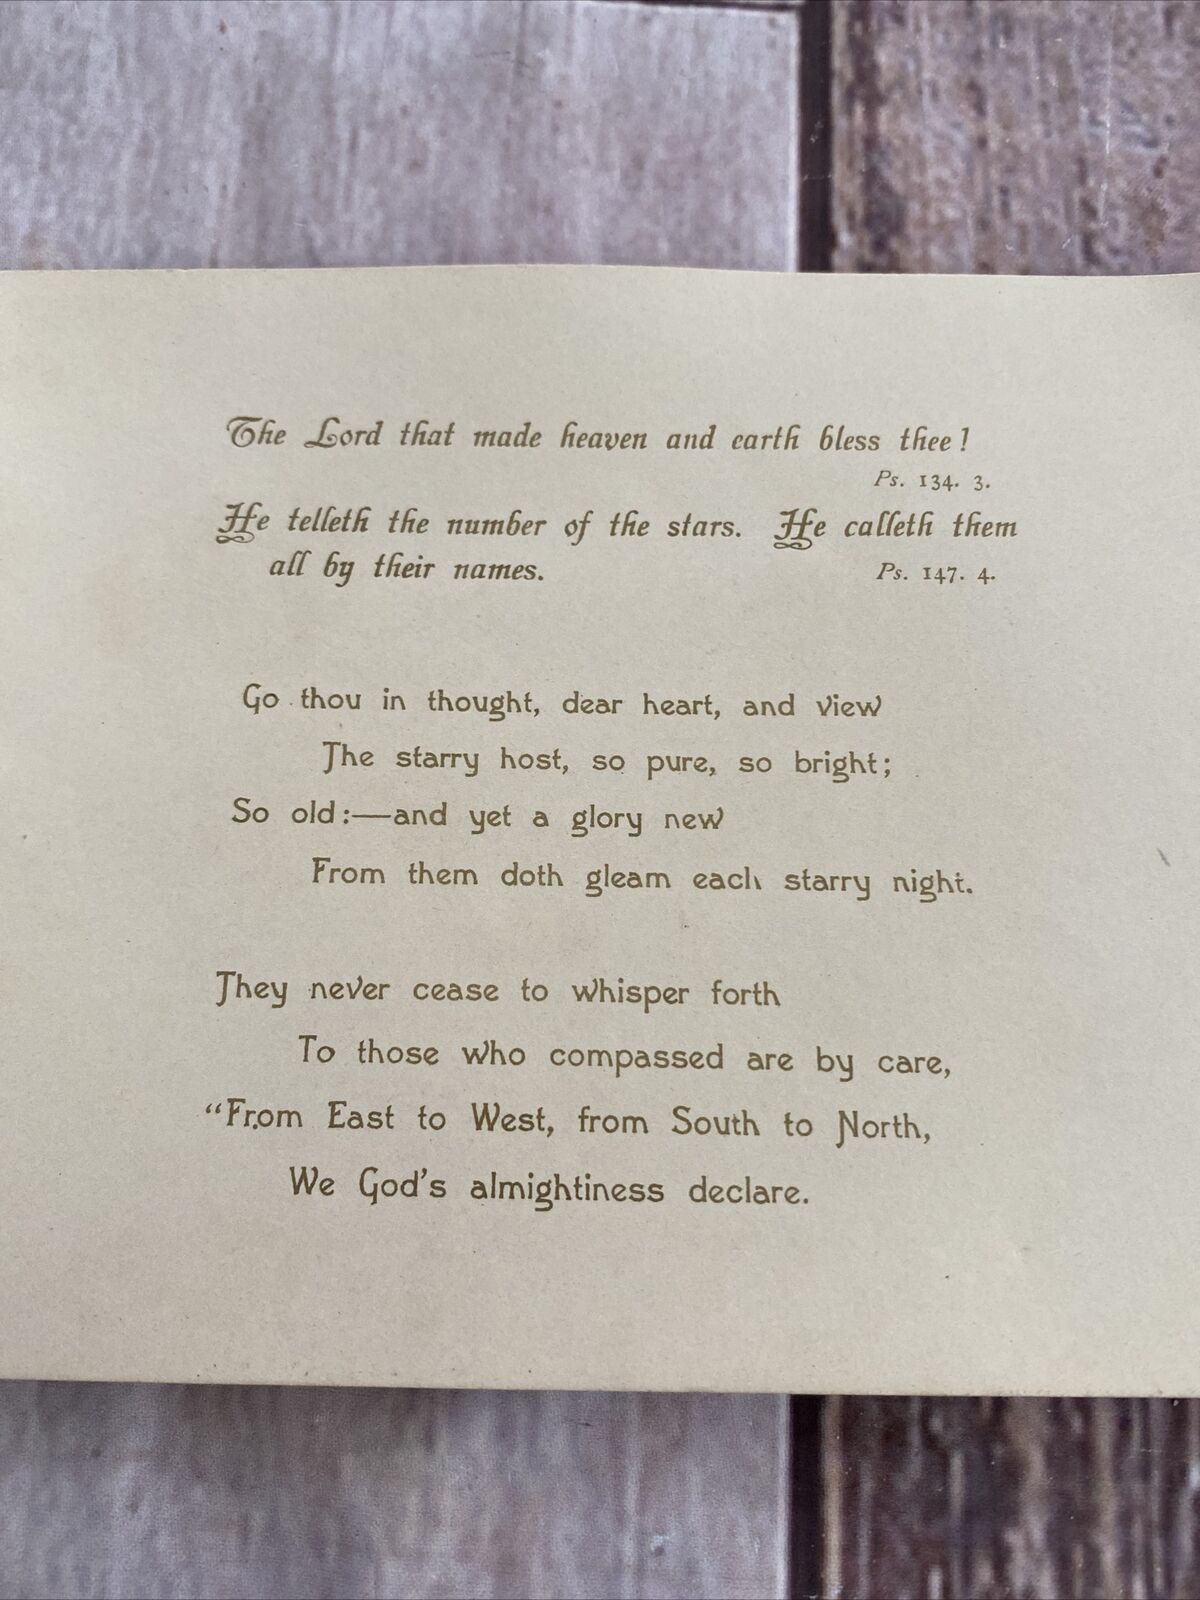 The Lord that made heaven and earth bless thee!
Ps. 134. 3.
He telleth the number of the stars. He calleth them
all by their names. Ps. 147. 4.
Go thou in thought, dear heart, and view
The starry host, so pure, so bright;
So old:—and yet a glory new
From them doth gleam each starry night.
They never cease to whisper forth
To those who compassed are by care,
“From East to West, from South to North,
We God's almightiness declare.